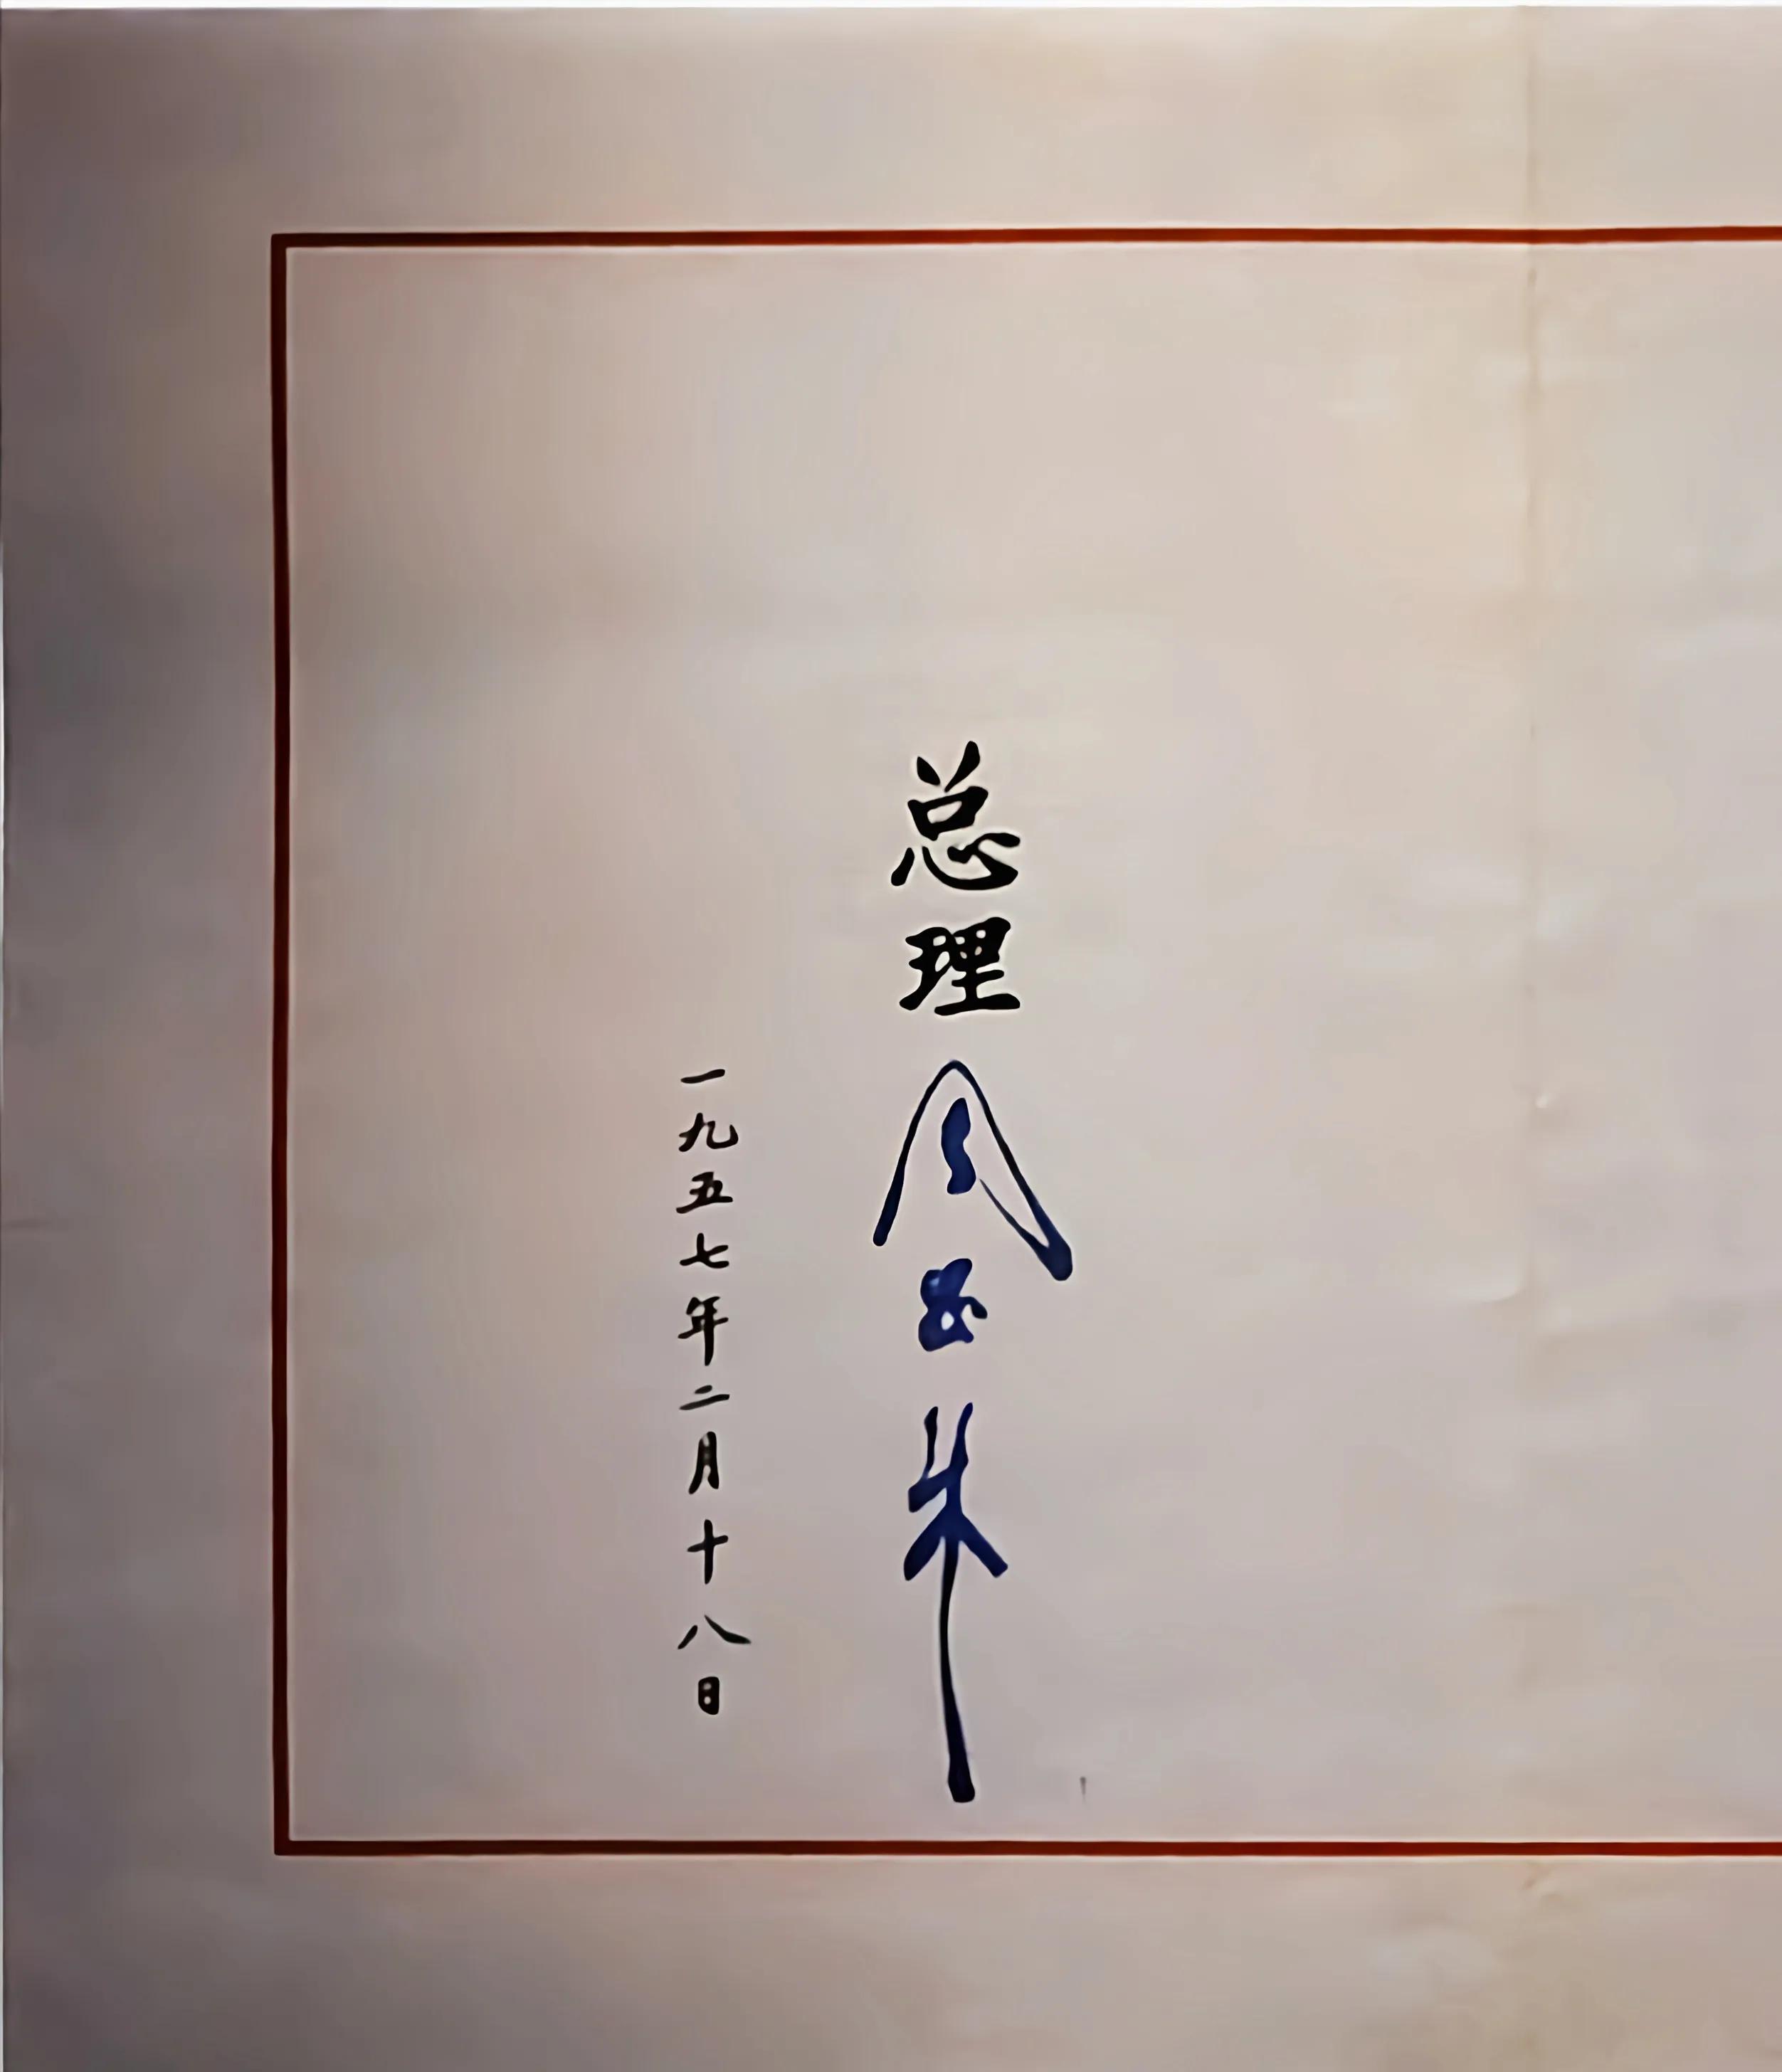 总理 周恩来
一九五七年二月十八日